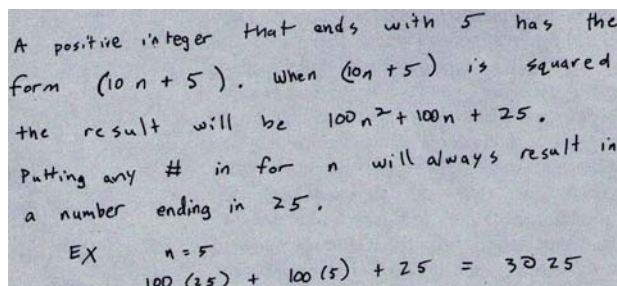 A positive integer that ends with 5 has the
form (10n + 5). When (10n + 5) is squared
the result will be 100n² + 100n + 25.
Putting any # in for n will always result in
a number ending in 25.
EX n = 5
100 (25) + 100 (5) + 25 = 3025